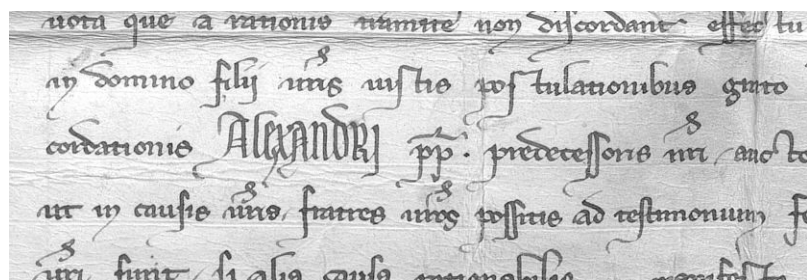 uota que a rationis tramite non discordant effectu
in domino filii uris iustis postulationibus grato
cordationis ALEXANDRI pp. predecessoris nri auct
ut in causis uris fratres uros possitis ad testimonium
nri sunt si alia causa rationabilis manifeste